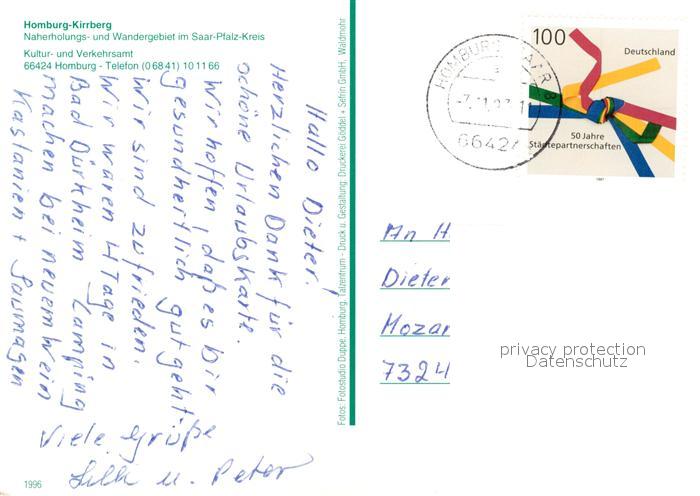 Homburg-Kirrberg
Naherholungs- und Wandergebiet im Saar-Pfalz-Kreis
Kultur- und Verkehrsamt
66424 Homburg - Telefon (0 68 41) 10 11 66
Hallo Dieter!
Herzlichen Dank für die
schöne Urlaubskarte.
Wir hoffen, daß es Dir
gesundheitlich gut geht
wir sind zufrieden.
Wir waren 4 Tage in
Bad Dürkheim Camping
machen bei neuem Wein
Kastanien + Saumagen
Viele Grüße
u. Peter
1996
Fotos: Fotostudio Duppe, Homburg, Talzentrum - Druck u. Gestaltung: Druckerei Göddel + Sefrin GmbH, Waldmohr
HOMBURG SAAR 8
-7.11.97-11
66424
100
Deutschland
50 Jahre
Städtepartnerschaften
1997
An H
Dieter
Mozar
7324
privacy protection
Datenschutz